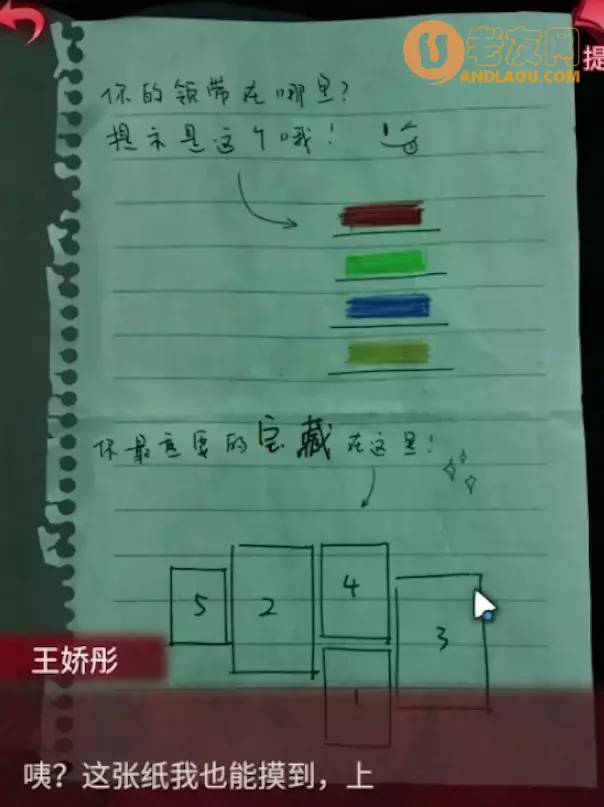 老友网
ANDLAOU.COM
提
你的领带在哪里？
提示是这个哦！
你最重要的宝藏在这里！
5
2
4
3
1
王娇彤
咦？这张纸我也能摸到，上